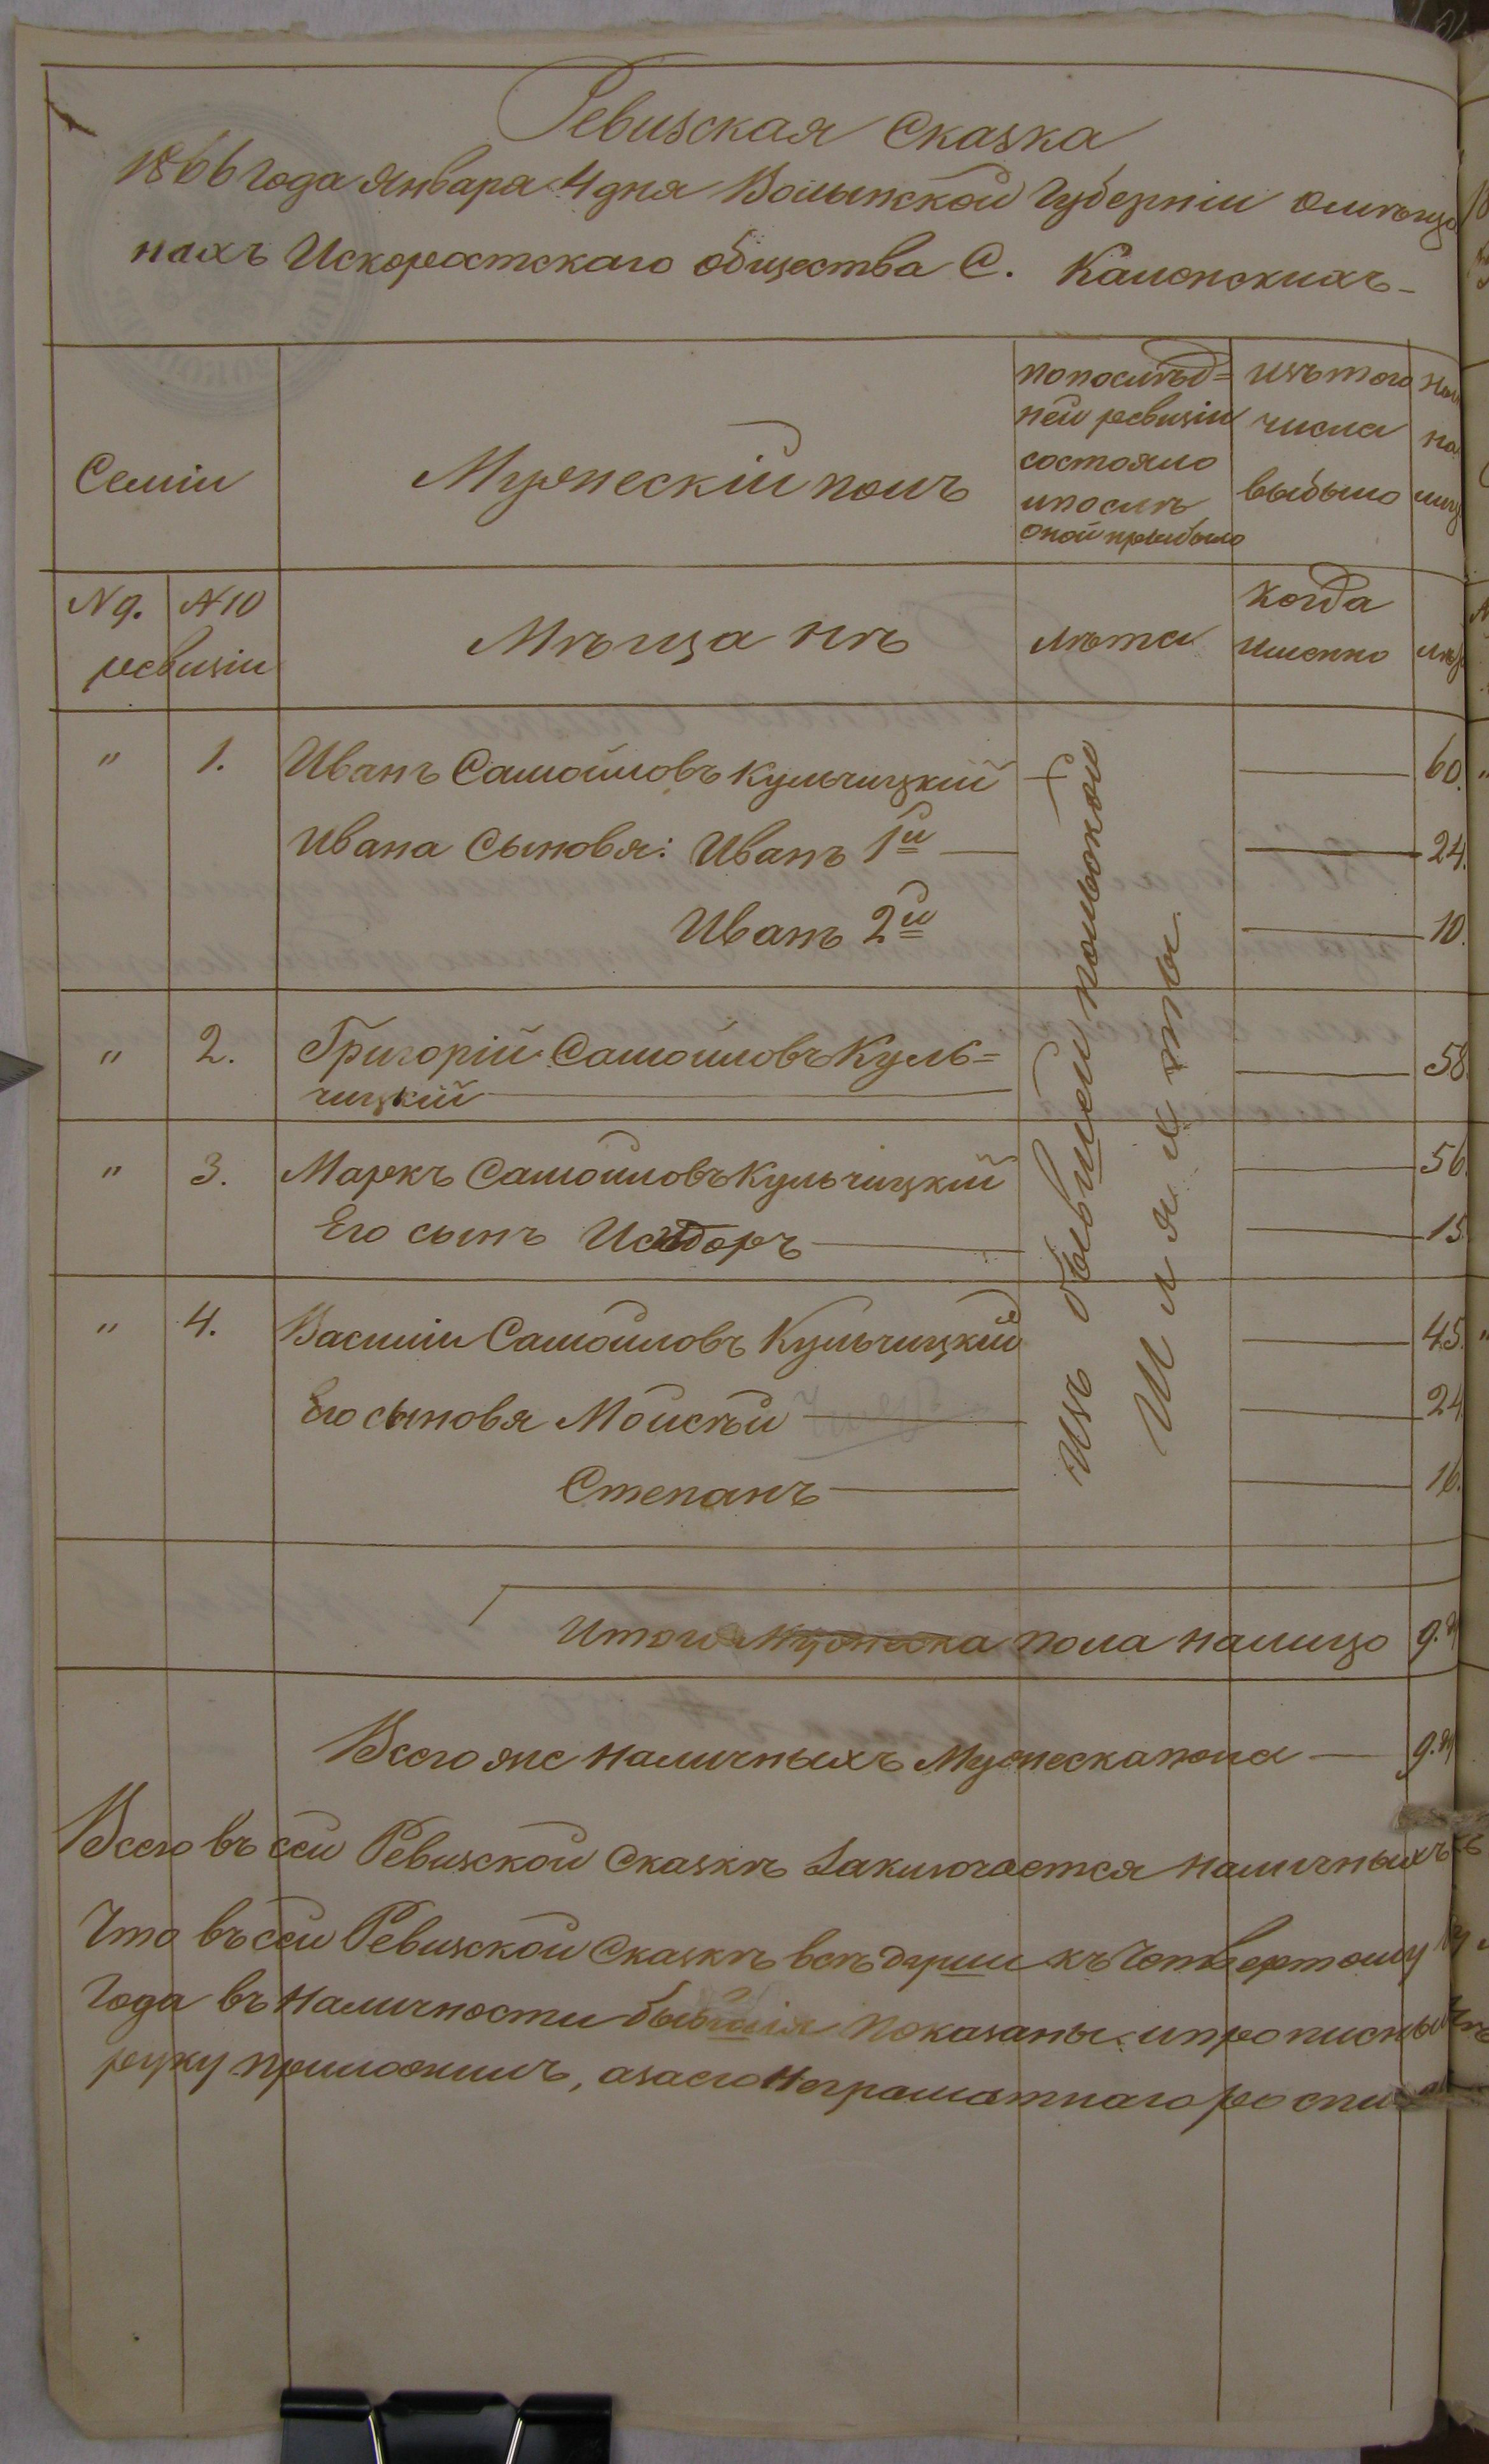 Ревизская Сказка
1866 Года Января 4 дня Волынской Губерніи о мѣща
нахъ Искоростскаго общества С. Каменскихъ
Семіи
Мужескій полъ
по послѣд=
ней ревизіи
состояло
и послѣ
оной прибыло
изъ того
числа
выбыло
N 9. N 10
ревизіи
Мѣщанѣ
лѣта
Когда
именно
" 1. Иванъ Самойловъ Кульчицкій 60.
Ивана Сыновья: Иванъ 1й 24.
Иванъ 2й 10.
" 2. Григорій Самойловъ Куль=
чицкій 58.
" 3. Маркъ Самойловъ Кульчицкій 56.
Его сынъ Исидоръ 15.
" 4. Василій Самойловъ Кульчицкій 45.
Его сыновя Моисѣй 24.
Степанъ 16.
Изъ бывшей польской
Шляхты
Итого Мужеска пола налицо 9.
Всего же наличныхъ Мужеска пола 9.
Всего въ сей Ревизской Сказкѣ Заключается наличныхъ
Что въ сей Ревизской Сказкѣ всѣ души къ Четвертому
Года въ наличности бывшія показаны и прописны
руку приложилъ, а за его Неграматнаго роспи